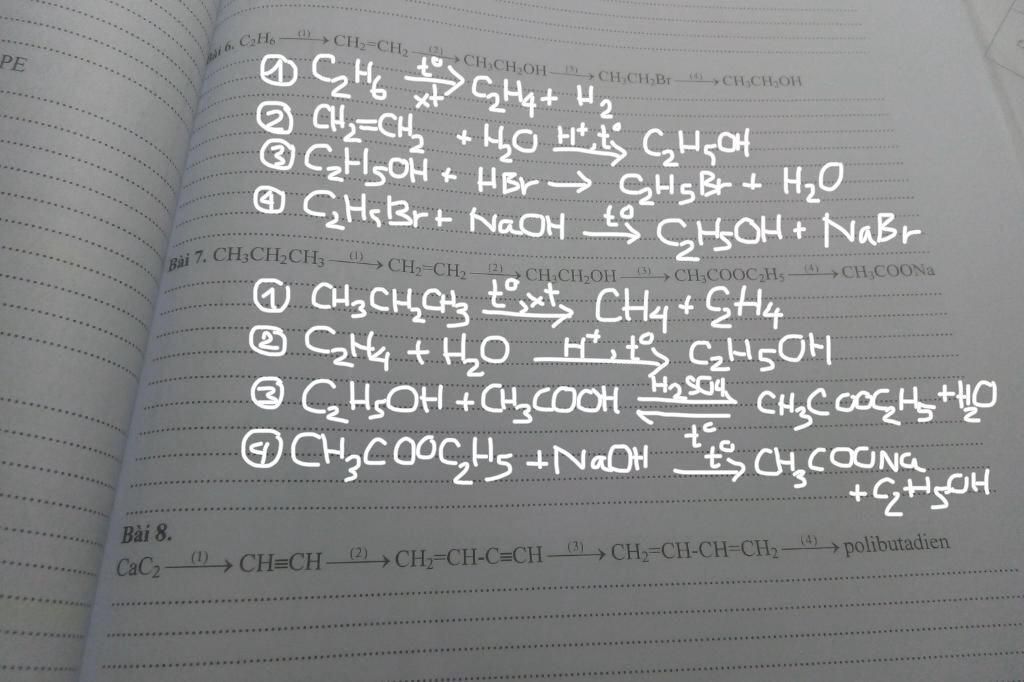 PE
Bài 6. C₂H₆ —(1)→ CH₂=CH₂ —(2)→ CH₃CH₂OH —(3)→ CH₃CH₂Br —(4)→ CH₃CH₂OH
① C₂H₆ —t°, xt→ C₂H₄ + H₂
② CH₂=CH₂ + H₂O —H⁺, t°→ C₂H₅OH
③ C₂H₅OH + HBr → C₂H₅Br + H₂O
④ C₂H₅Br + NaOH —t°→ C₂H₅OH + NaBr
Bài 7. CH₃CH₂CH₃ —(1)→ CH₂=CH₂ —(2)→ CH₃CH₂OH —(3)→ CH₃COOC₂H₅ —(4)→ CH₃COONa
① CH₃CH₂CH₃ —t°, xt→ CH₄ + C₂H₄
② C₂H₄ + H₂O —H⁺, t°→ C₂H₅OH
③ C₂H₅OH + CH₃COOH ⇌ (H₂SO₄, t°) CH₃COOC₂H₅ + H₂O
④ CH₃COOC₂H₅ + NaOH —t°→ CH₃COONa
+ C₂H₅OH
Bài 8.
CaC₂ —(1)→ CH≡CH —(2)→ CH₂=CH-C≡CH —(3)→ CH₂=CH-CH=CH₂ —(4)→ polibutadien